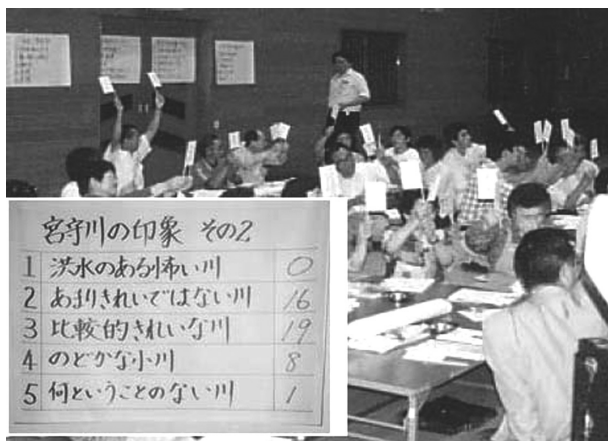 宮守川の印象 その2
1 洪水のある怖い川 0
2 あまりきれいではない川 16
3 比較的きれいな川 19
4 のどかな小川 8
5 何ということのない川 1